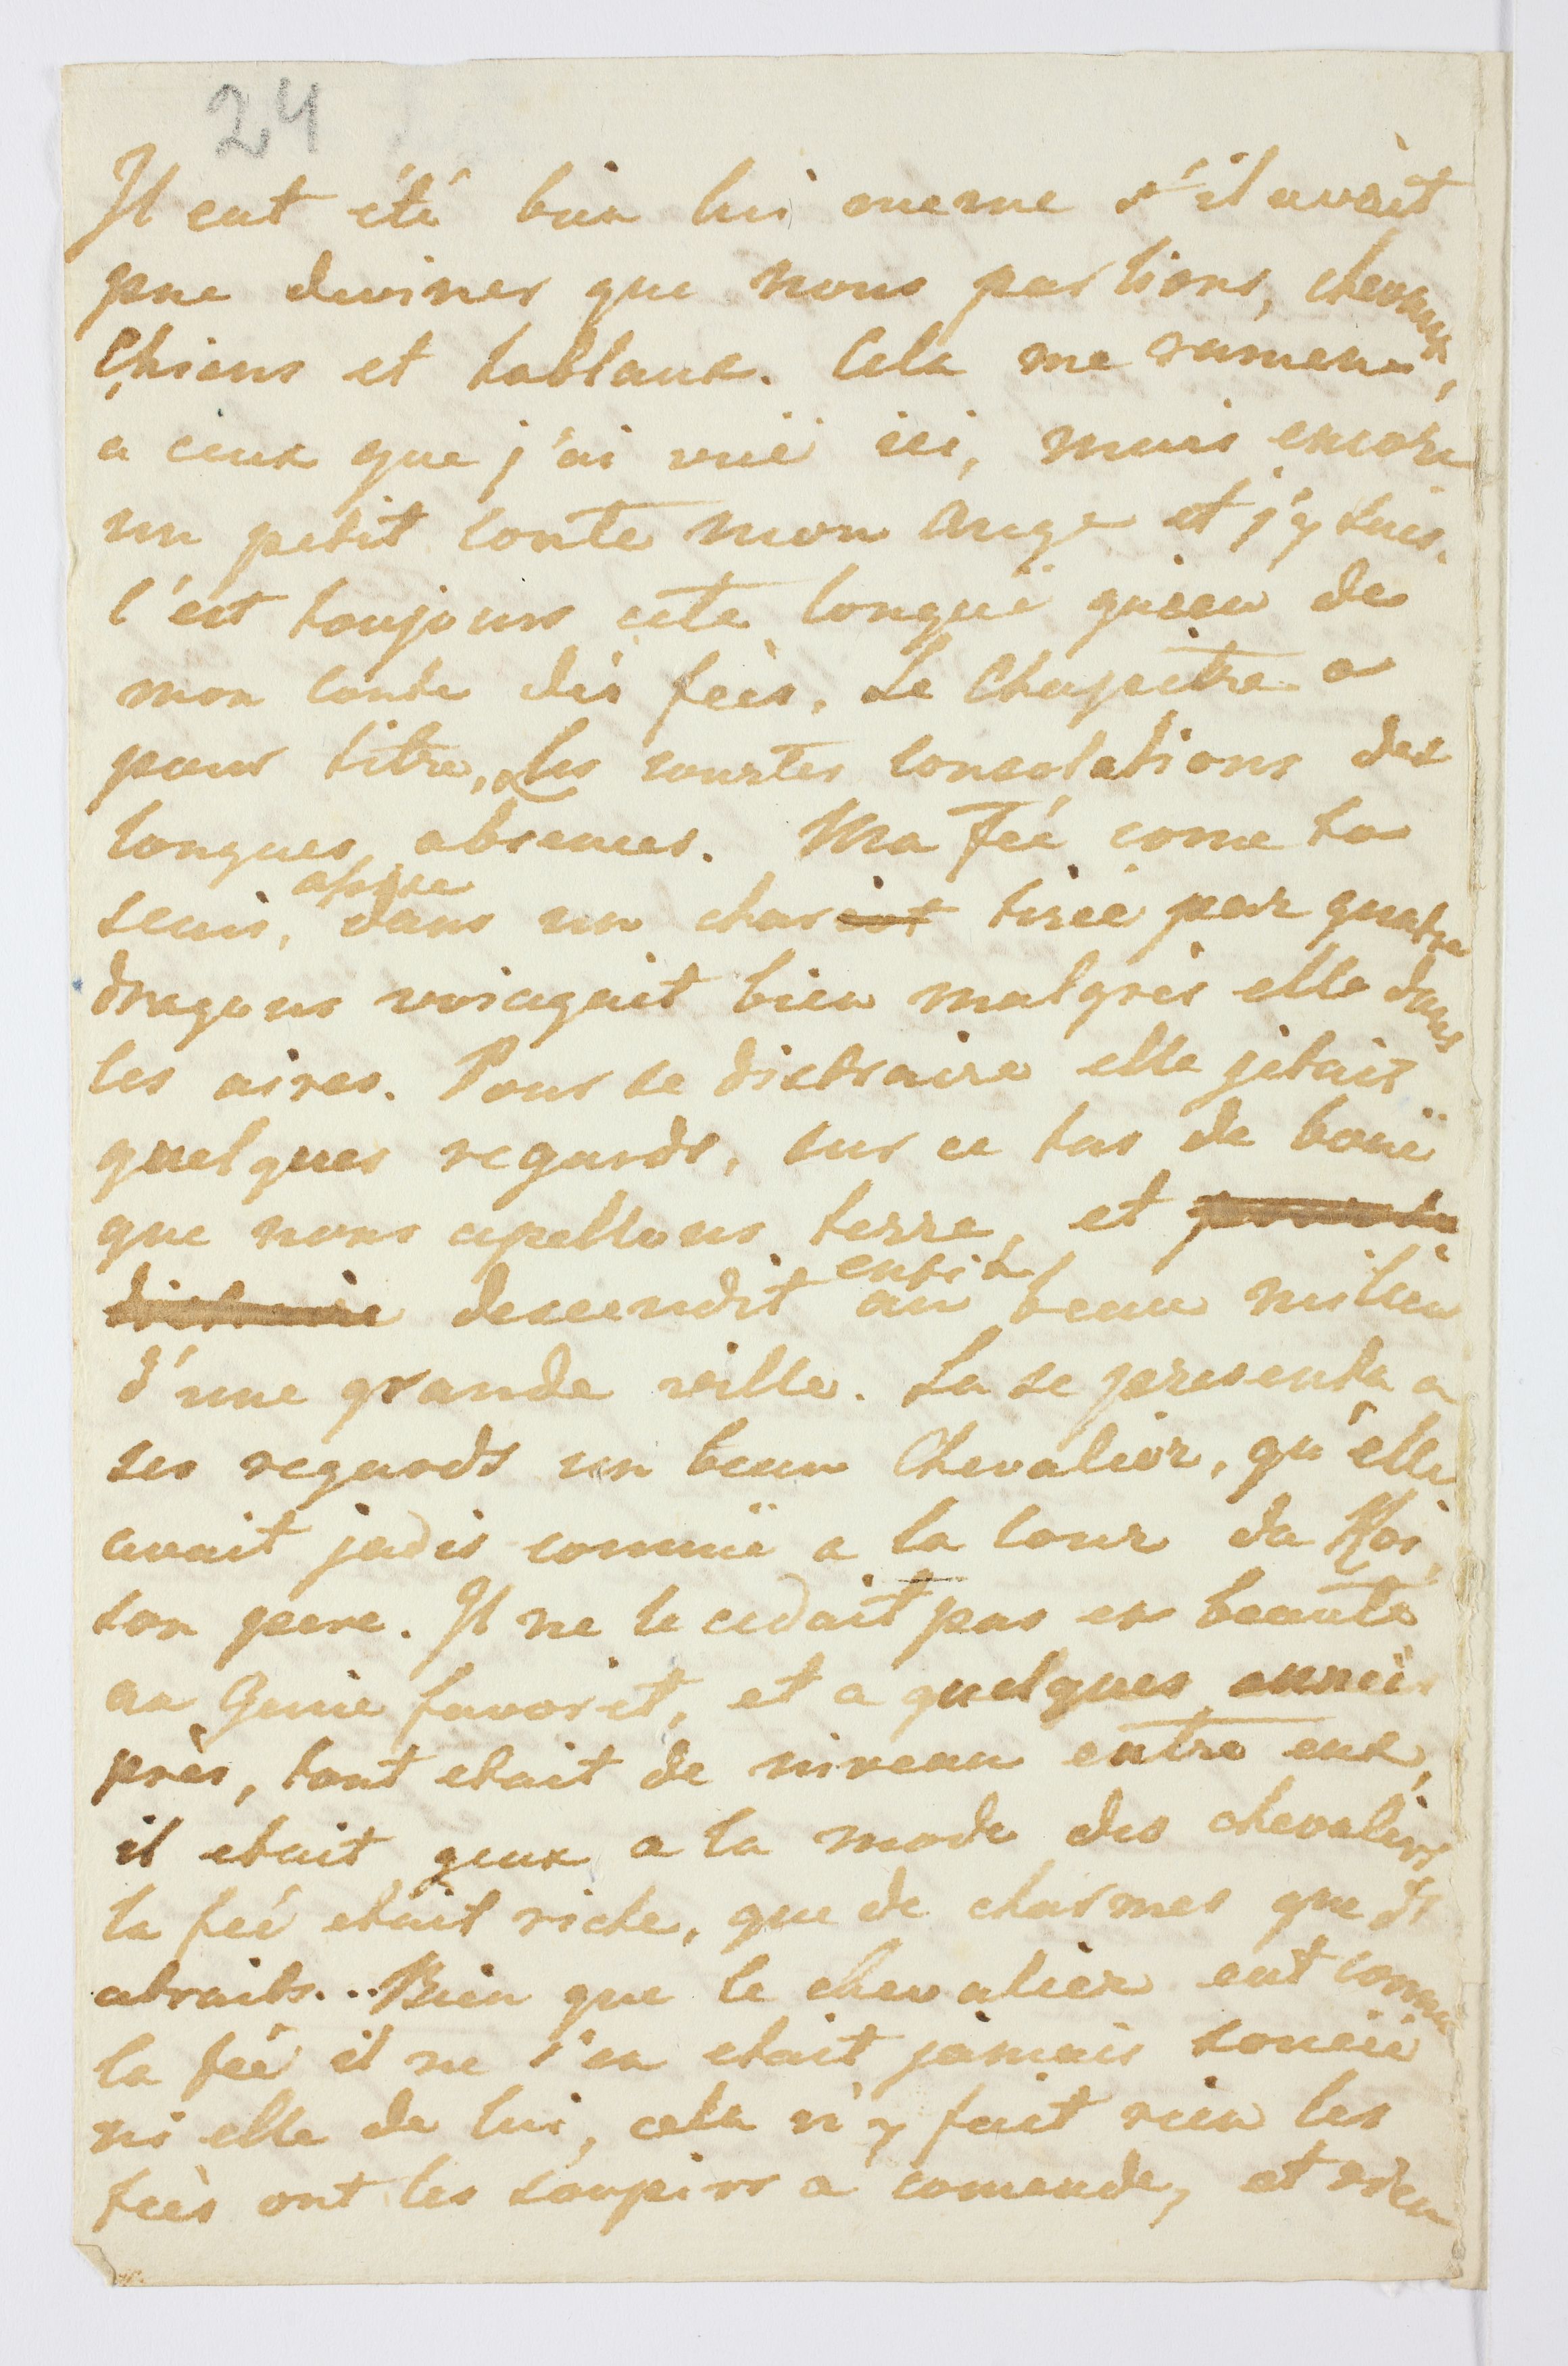 24
Il eut été bien lui meme s'il avait
pue deviner que nous partions, chevaux,
Chiens et tablaux. Cela me ramene
a ceux que j'ai vuë ici, mais encore
un petit conte mon Ange et j'y suis.
C'est toujours cete longuë queu de
mon conte dés feés. Le Chapitre a
pour titre, Les courtes consolations des
longues absences. Ma Feé come tu
scais, assise dans un chariot tirée par quatre
dragons voiagait bien malgrès elle dans
les aires. Pour se distraire elle jetait
quelques regards, sur ce tas de bouë
que nous apellons terre, et pour se
distraire descendit ensite au beau milieu
d'une grande ville. La se presenta a
ses regards un beau Chevalier, qu'elle
avait jadis connuë a la Cour du Roi,
son pere. Il ne le cedait pas en beauté
au Genie favorit, et a quelques anneés
près, tout etait de niveau entre eux,
il etait geux a la mode des chevaliers,
la feé etait riche, que de charmes que d'
atraits... Bien que le chevalier eut connu
la feé il ne s'en etait jamais soucié
ni elle de lui, cela n'y fait rien les
feés ont les soupirs a comande, et rien